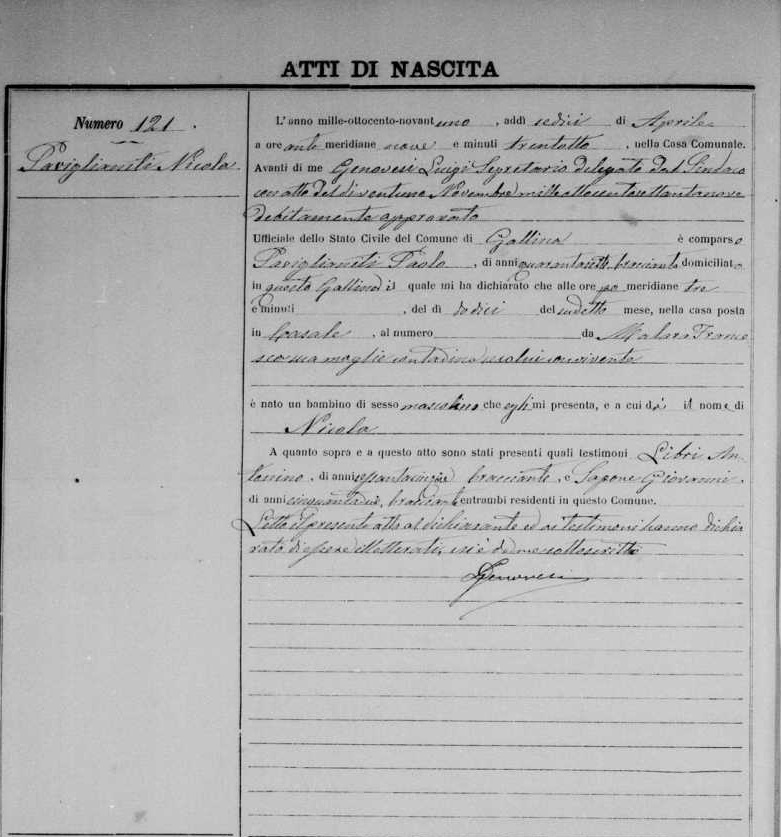 ATTI DI NASCITA
Numero 121.
Paviglianiti Nicola
L'anno mille-ottocento-novantuno, addì sedici di Aprile
a ore ante meridiane nove e minuti trentotto, nella Casa Comunale.
Avanti di me Genovesi Luigi Segretario delegato dal Sindaco
con atto del dì ventuno Novembre mille ottocento settantanove
debitamente approvato
Ufficiale dello Stato Civile del Comune di Gallina è comparso
Paviglianiti Paolo, di anni bracciante domiciliato
in questo Gallina il quale mi ha dichiarato che alle ore meridiane tre
e minuti , del dì dodici del sudetto mese, nella casa posta
in Casale, al numero da Malara France
sca sua moglie contadina seco lui convivente
è nato un bambino di sesso mascolino che egli mi presenta, e a cui dà il nome di
Nicola
A quanto sopra e a questo atto sono stati presenti quali testimoni Libri An-
tonino, di anni sessantacinque bracciante, e Sapone Giovanni,
di anni bracciante entrambi residenti in questo Comune.
Letto il presente atto al dichiarante ed ai testimoni hanno dichia
rato di essere illetterati, si è da me sottoscritto
Genovesi